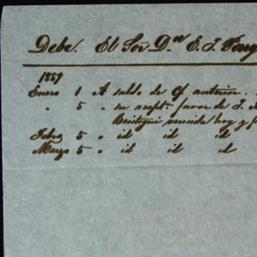 Debe. El Sor Dn E. J.
1859
Enero 1 A saldo de cta anterior.
" 5 " su acepn favor de J.
vencida hoy y
Febro 5 " id id id
Marzo 5 " id id id